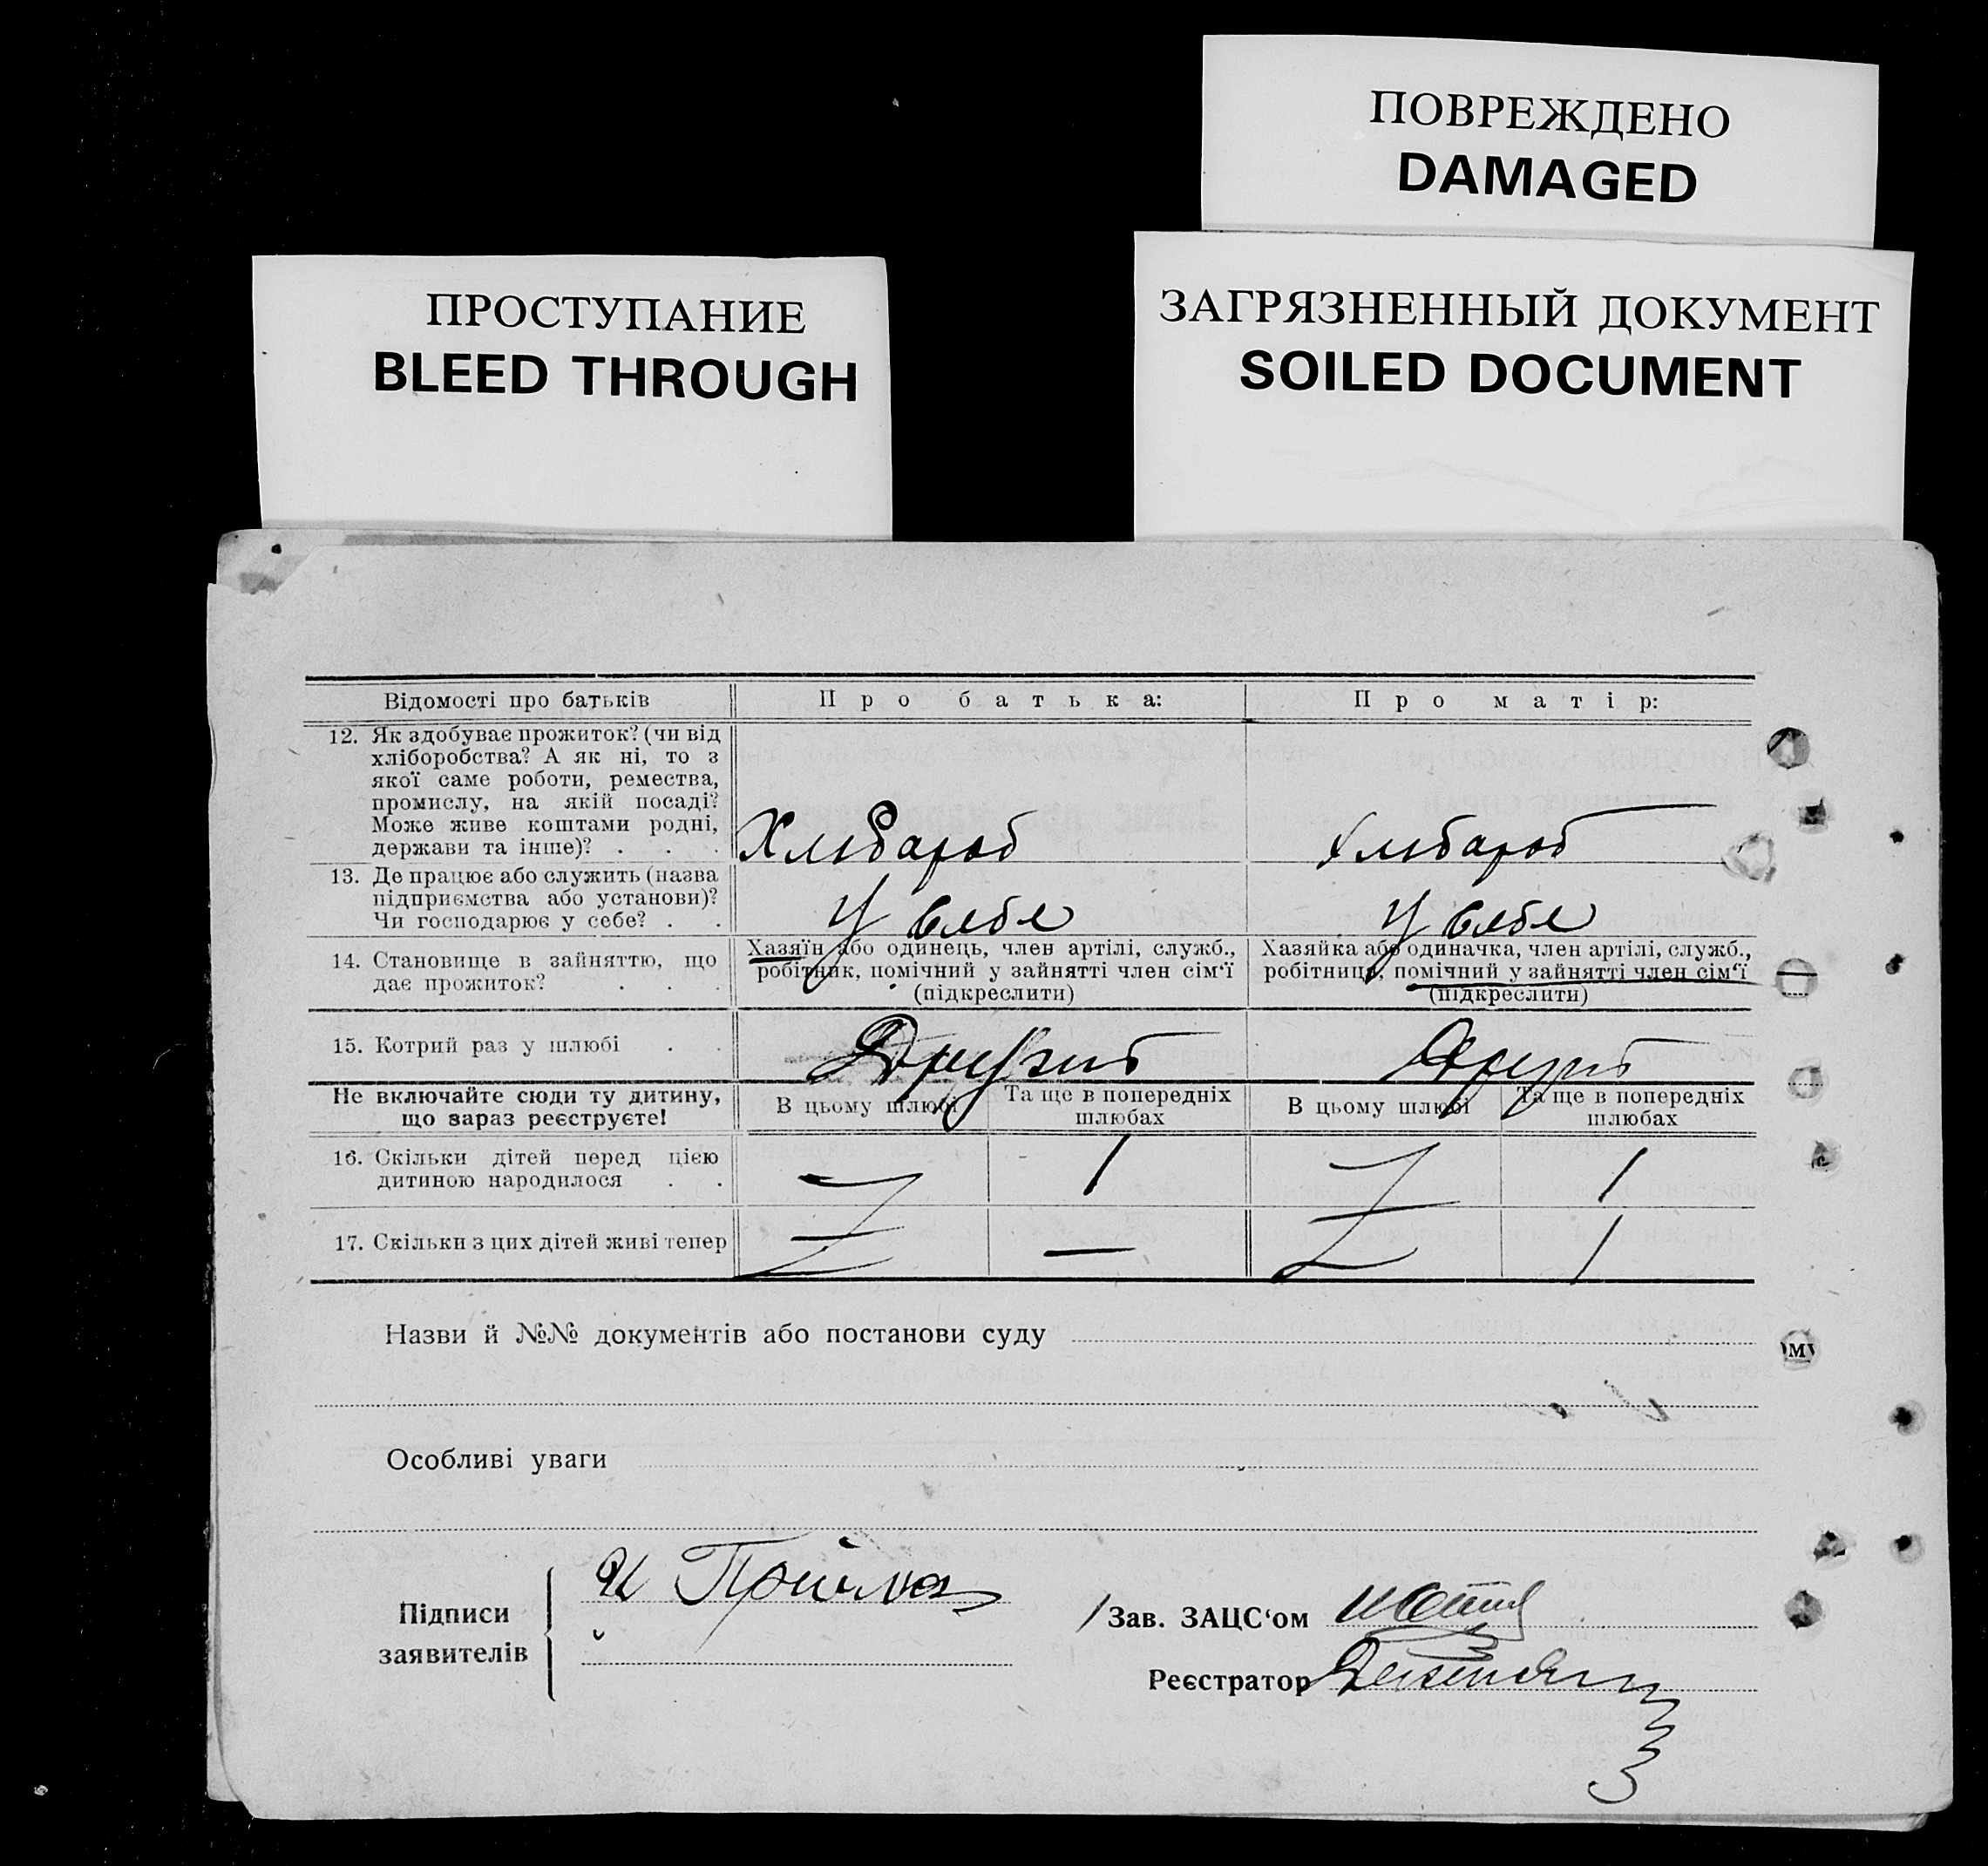 ПОВРЕЖДЕНО
DAMAGED
ПРОСТУПАНИЕ
BLEED THROUGH
ЗАГРЯЗНЕННЫЙ ДОКУМЕНТ
SOILED DOCUMENT
Відомості про батьків
Про батька:
Про матір:
12. Як здобуває прожиток? (чи від
хліборобства? А як ні, то з
якої саме роботи, ремества,
промислу, на якій посаді?
Може живе коштами родні,
держави та інше)? . . .
Хлібароб
Хлібароб
13. Де працює або служить (назва
підприємства або установи)?
Чи господарює у себе? . .
У себе
У себе
14. Становище в зайняттю, що
дає прожиток? . . .
Хазяїн або одинець, член артілі, служб.,
робітник, помічний у зайнятті член сім‘ї
(підкреслити)
Хазяйка або одиначка, член артілі, служб.,
робітниця, помічний у зайнятті член сім‘ї
(підкреслити)
15. Котрий раз у шлюбі . .
Не включайте сюди ту дитину,
що зараз реєструєте!
В цьому шлюбі
Та ще в попередніх
шлюбах
В цьому шлюбі
Та ще в попередніх
шлюбах
16. Скільки дітей перед цією
дитиною народилося . .
1
1
17. Скільки з цих дітей живі тепер
—
1
Назви й №№ документів або постанови суду
Особливі уваги
Підписи
заявителів
Зав. ЗАЦС‘ом
Реєстратор